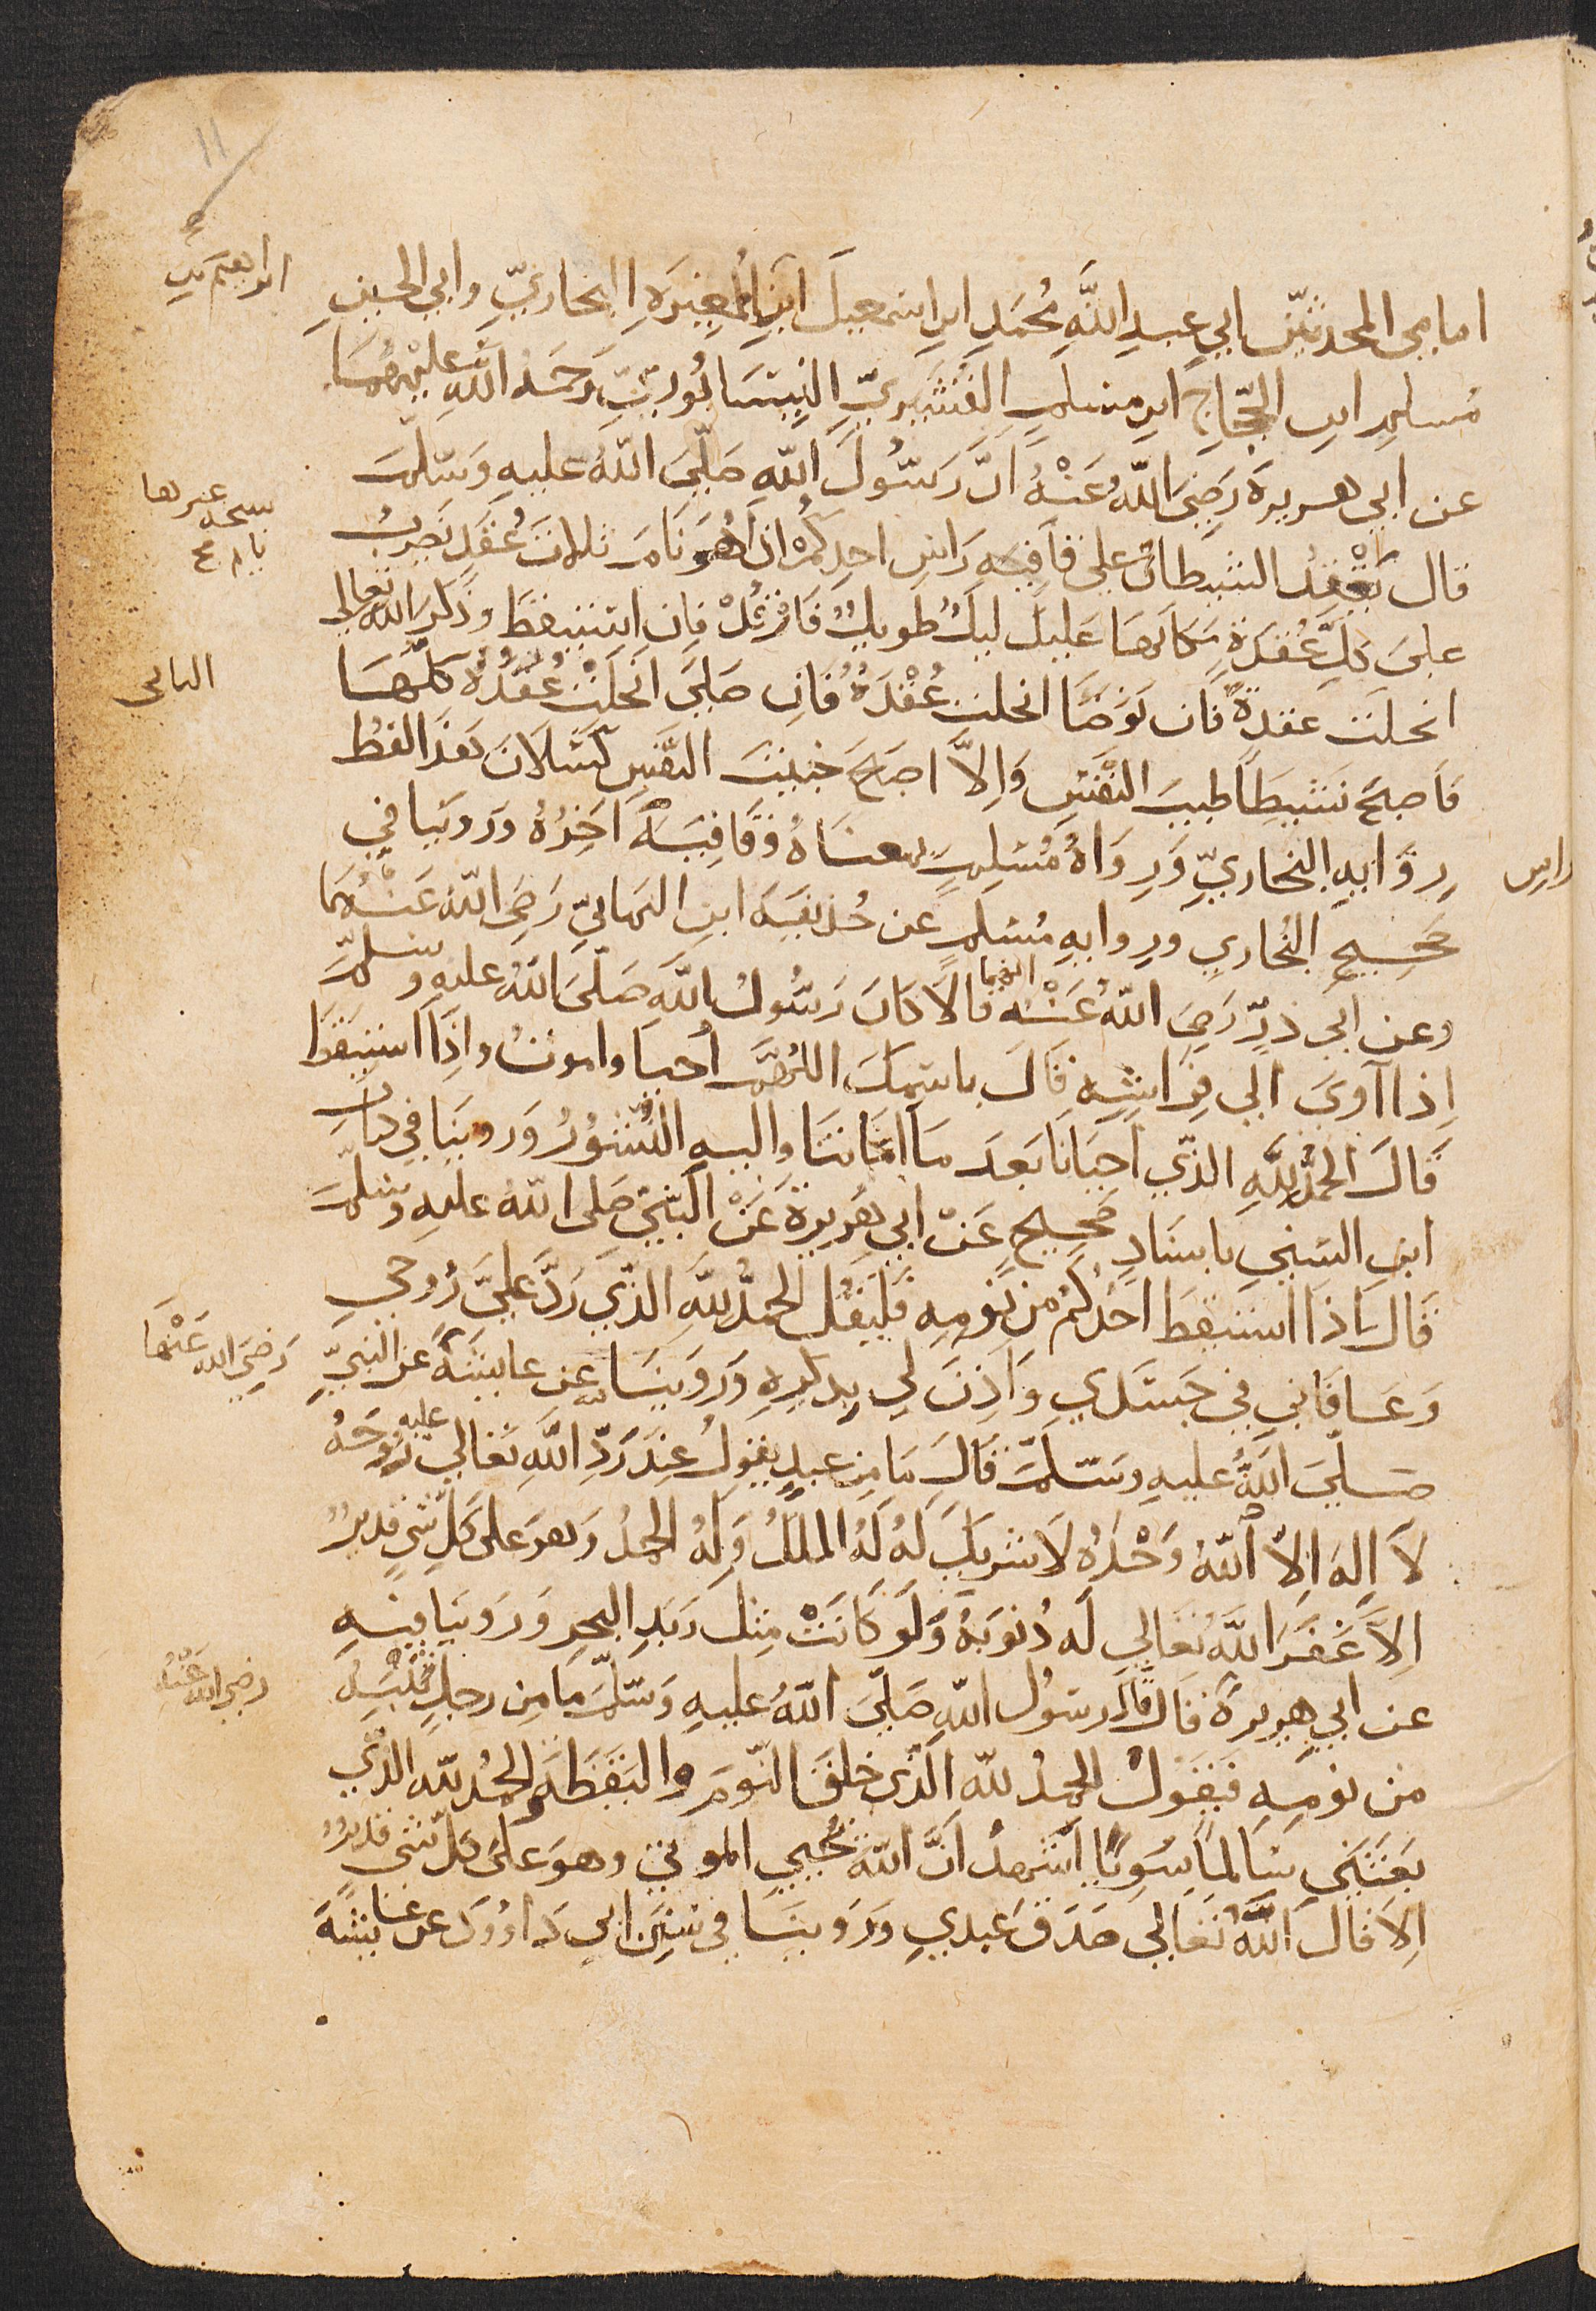 ١١
امامي المحدثين ابي عبدِ اللَّهِ مُحَمَّدِ ابنِ اسمعيلَ ابنِ المُغِيرَةِ البخاريِّ وابي الحسينِ
ابراهيم بن
مُسلِمِ ابنِ الحَجَّاجِ ابنِ مسلمٍ القُشَيْرِيِّ النِيسَابُورِيِّ رَحمَةُ اللَّهِ عليْهِمَا
عن ابي هريرةَ رَضِيَ اللَّهُ عَنْهُ انَّ رَسُولَ اللَّهِ صَلَّى اللَّهُ عليهِ وَسَلَّمَ
قال يَعْقِدُ الشيطانُ علي قَافِيَةِ رَاسِ احدِكُمْ اذَا هُوَ نَامَ ثلاثَ عُقَدٍ يَضرِبُ
علىَ كلِّ عُقدَةٍ مَكَانَهَا عَليكَ ليلٌ طويلٌ فَارْقُدْ فان استيقظَ وذَكرَ اللَّهَ تعالى
انحلَت عقدةٌ فان تَوَضَّا انحلت عُقْدَةٌ فَانِ صَلَّى انحلَتْ عُقَدُهُ كلُّهَا
فَاصبحَ نَشيطًا طيبَ النَّفْسِ وَاِلاَّ اصبَحَ خَبيثَ النَّفسِ كَسْلاَنَ هَذَا لفظُ
رِوَايةِ البُخاريِّ وَرِوَاهُ مُسْلِمٍ بمعناهُ وقَافِيَةُ
اخِرُهُ ورَوَينا في
راسِ
صَحِيحِ البُخاري وروايةِ مُسْلمٍ عن حُذيفَةَ ابنِ اليَمانِيِّ رَضِيَ اللَّهُ عَنْهُمَا
وعن ابي ذرٍّ رَضِيَ اللَّهُ عَنْهُ قالاَ كَانَ رَسُولُ اللَّهِ صَلَّىَ اللَّهُ عليهِ وسَلَّمَ
اِذا آوَىَ الي فِرَاشِهِ قَالَ باسْمِكَ اللَّهُمَّ أحيَا واموتُ وإذَا استَيقَظَ
قَالَ الحَمْدُ لِلَّهِ الذّي احيَانَا بَعدَ مَا امَاتَنَا واليهِ النُّشُوُرُ وَرَوينَا في كتابِ
ابنِ السُني باسنَادٍ صَحِيحٍ عَنْ ابي هُرَيرةَ عَنِ النَّبِيّ صَلى اللَّهُ عليهِ وسَلَّمَ
قَال اذَا استيقظَ احَدُكُمْ من نَوْمِهِ فَليَقُلْ الحَمْدُ لِلَّهِ الذّي رَدَّ عَلَيَّ رُوحِي
وَعَافَاني في جَسَدي وَاَذِنَ لي بِذكرِهِ وَرَوَينَا فيه عن عايشَةَ عَن النَبِيّ
رَضِيَ اللَّه عَنْهَا
صَلَّىَ اللَّهُ عليهِ وسَلَّمَ قَالَ مَا مِن عبدٍ يقولُ عِنْدَ رَدِّ اللَّهِ تَعَالي عليه رُوحَهُ
لاَ اِلَهَ اِلاَّ اللَّهُ وَحْدَهُ لاَ شريكَ لَهُ لَهُ الملكُ وَلَهُ الحَمْدُ وَهوَ علىَ كلِّ شيٍ قديرٌ
اِلاَّ غَفَرَ اللَّهُ تعَالي لَه ذُنوبَهُ وَلَو كَانَتْ مِثلَ زَبَدِ البحرِ وَرَوينا فيهِ
عن ابي هريرةَ قَال قَالَ رسُولُ اللَّهِ صَلَّى اللَّهُ عليهِ وَسَلَّمَ مَا مِن رجلٍ يَنْتَبِهُ
رضي الله عَنْهُ
من نومِهِ فيَقُولُ الحمدُ للَّه الَّذي خلقَ النَّومَ واليَقَظَةَ الحمدُ للَّه الذّي
بَعَثَنِي سَالمًا سَوِيًا أَشهدُ اَنَّ اللَّهَ يُحْيي الموتى وهوَ علىَ كلِّ شيٍ قديرٌ
اِلاَ قَالَ اللَّهُ تَعَالي صَدَقَ عَبدي وَرَوينَا في سُنَن ابي دَاوُودَ عن عايشَةَ